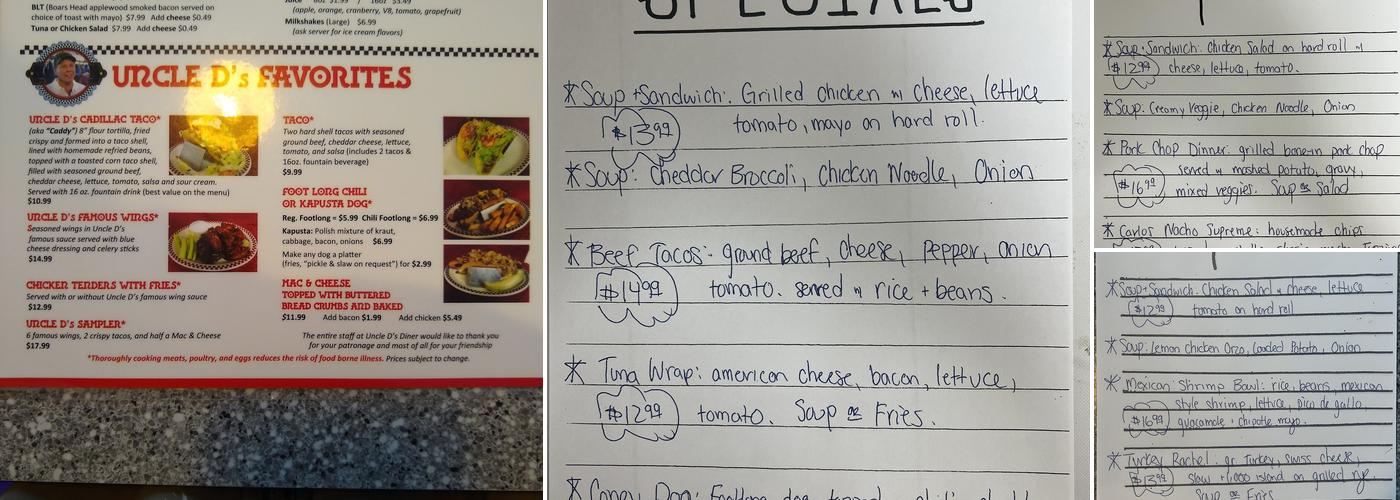 BLT (Boars Head applewood smoked bacon served on
choice of toast with mayo) $7.99 Add cheese $0.49
Tuna or Chicken Salad $7.99 Add cheese $0.49
(apple, orange, cranberry, V8, tomato, grapefruit)
Milkshakes (Large) $6.99
(ask server for ice cream flavors)
UNCLE D's FAVORITES
UNCLE D's CADILLAC TACO*
(aka "Caddy") 8" flour tortilla, fried
crispy and formed into a taco shell,
lined with homemade refried beans,
topped with a toasted corn taco shell,
filled with seasoned ground beef,
cheddar cheese, lettuce, tomato, salsa and sour cream.
Served with 16 oz. fountain drink (best value on the menu)
$10.99
UNCLE D's FAMOUS WINGS*
Seasoned wings in Uncle D's
famous sauce served with blue
cheese dressing and celery sticks
$14.99
CHICKEN TENDERS WITH FRIES*
Served with or without Uncle D's famous wing sauce
$12.99
UNCLE D's SAMPLER*
6 famous wings, 2 crispy tacos, and half a Mac & Cheese
$17.99
TACO*
Two hard shell tacos with seasoned
ground beef, cheddar cheese, lettuce,
tomato, and salsa (includes 2 tacos &
16oz. fountain beverage)
$9.99
FOOT LONG CHILI
OR KAPUSTA DOG*
Reg. Footlong = $5.99 Chili Footlong = $6.99
Kapusta: Polish mixture of kraut,
cabbage, bacon, onions $6.99
Make any dog a platter
(fries, "pickle & slaw on request") for $2.99
MAC & CHEESE
TOPPED WITH BUTTERED
BREAD CRUMBS AND BAKED
$11.99 Add bacon $1.99 Add chicken $5.49
The entire staff at Uncle D's Diner would like to thank you
for your patronage and most of all for your friendship
*Thoroughly cooking meats, poultry, and eggs reduces the risk of food borne illness. Prices subject to change.
SPECIALS
* Soup + Sandwich: Grilled chicken w cheese, lettuce
$13.99 tomato, mayo on hard roll.
* Soup: Cheddar Broccoli, Chicken Noodle, Onion
* Beef Tacos: ground beef, cheese, Pepper, onion
$14.99 tomato. served w rice + beans.
* Tuna Wrap: american cheese, bacon, lettuce,
$12.99 tomato. Soup or Fries.
* Coney Dog: Footlong dog
* Soup + Sandwich: Chicken Salad on hard roll w
$12.99 cheese, lettuce, tomato.
* Soup: Creamy Veggie, Chicken Noodle, Onion
* Pork Chop Dinner: grilled bone-in pork chop
served w mashed potato, gravy,
$16.99 mixed veggies. Soup or Salad
* Carlos Nacho Supreme: housemade chips
* Soup + Sandwich: Chicken Salad w cheese, lettuce
$12.99 tomato on hard roll
* Soup: Lemon Chicken Orzo, Loaded Potato, Onion
* Mexican Shrimp Bowl: rice, beans, mexican
style shrimp, lettuce, pico de gallo,
$16.99 guacamole + chipotle mayo.
* Turkey Rachel: gr. Turkey, swiss cheese,
$13.99 slaw + 1,000 island on grilled rye
Soup or Fries